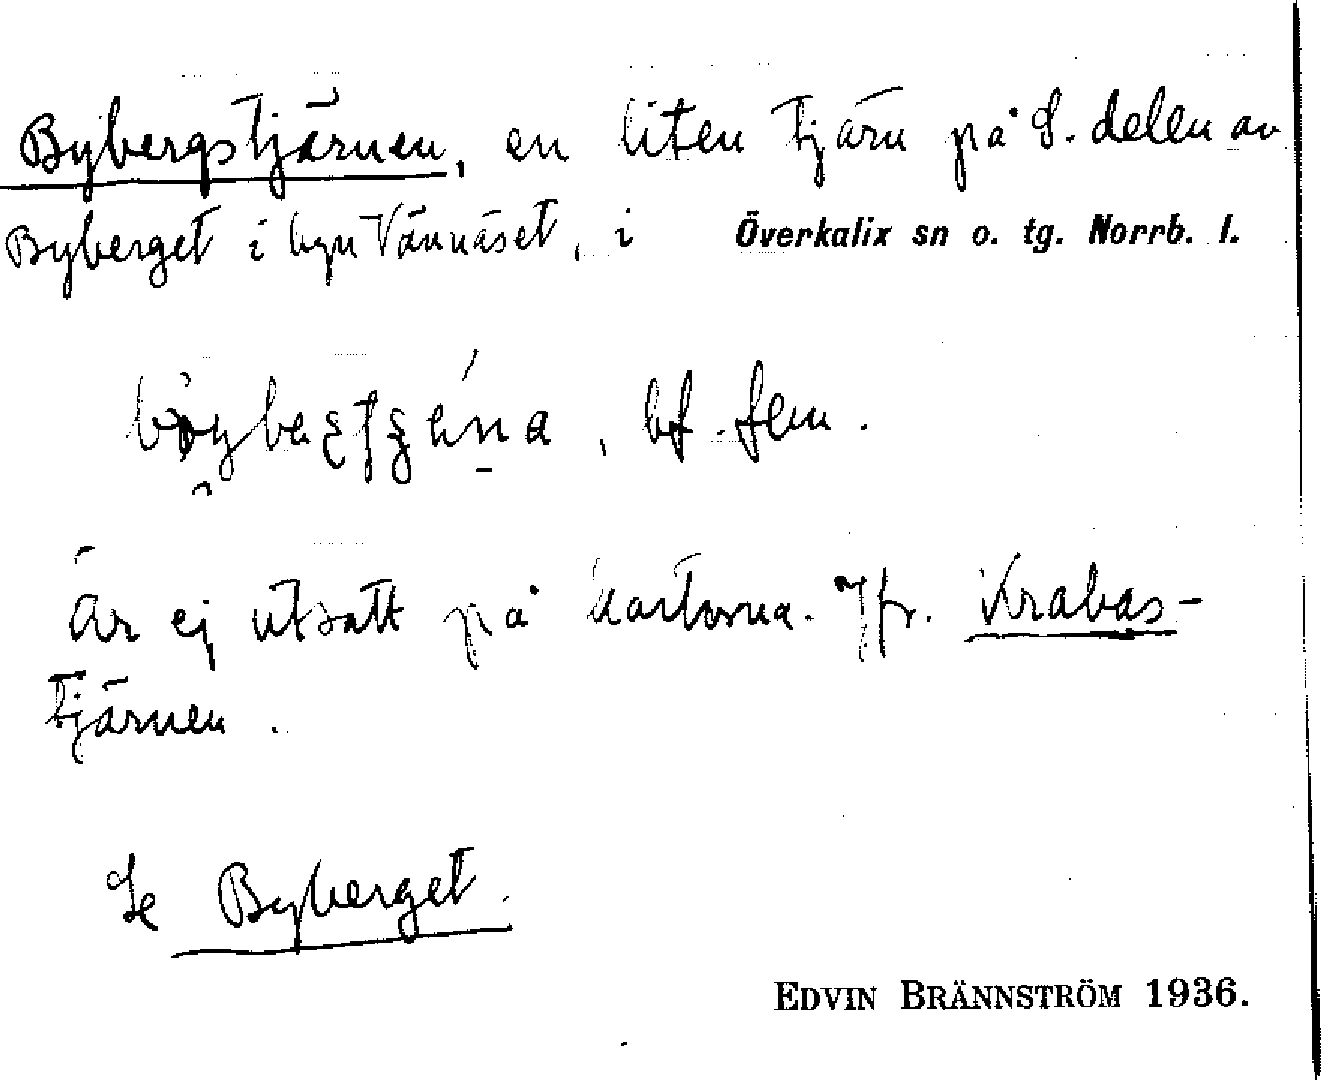 Bybergstjärnen, en liten tjärn på S. delen av
Byberget i byn Vännäset, i Överkalix sn o. tg. Norrb. l.
bf. fem.
Är ej utsatt på kartorna. Jfr. Krabas-
tjärnen.
Se Byberget.
EDVIN BRÄNNSTRÖM 1936.